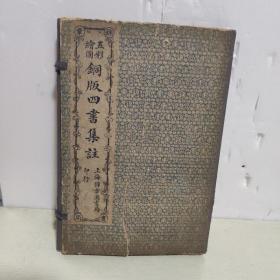 五彩
繪圖
銅版四書集註
上海
印行